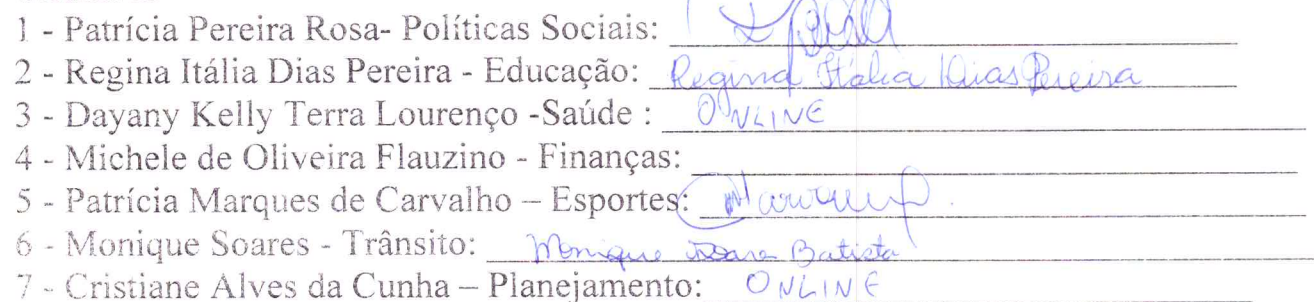 1 - Patrícia Pereira Rosa- Políticas Sociais:
2 - Regina Itália Dias Pereira - Educação: Regina Itália Dias Pereira
3 - Dayany Kelly Terra Lourenço -Saúde : ONLINE
4 - Michele de Oliveira Flauzino - Finanças:
5 - Patrícia Marques de Carvalho – Esportes:
6 - Monique Soares - Trânsito: Monique Soares Batista
7 - Cristiane Alves da Cunha – Planejamento: ONLINE